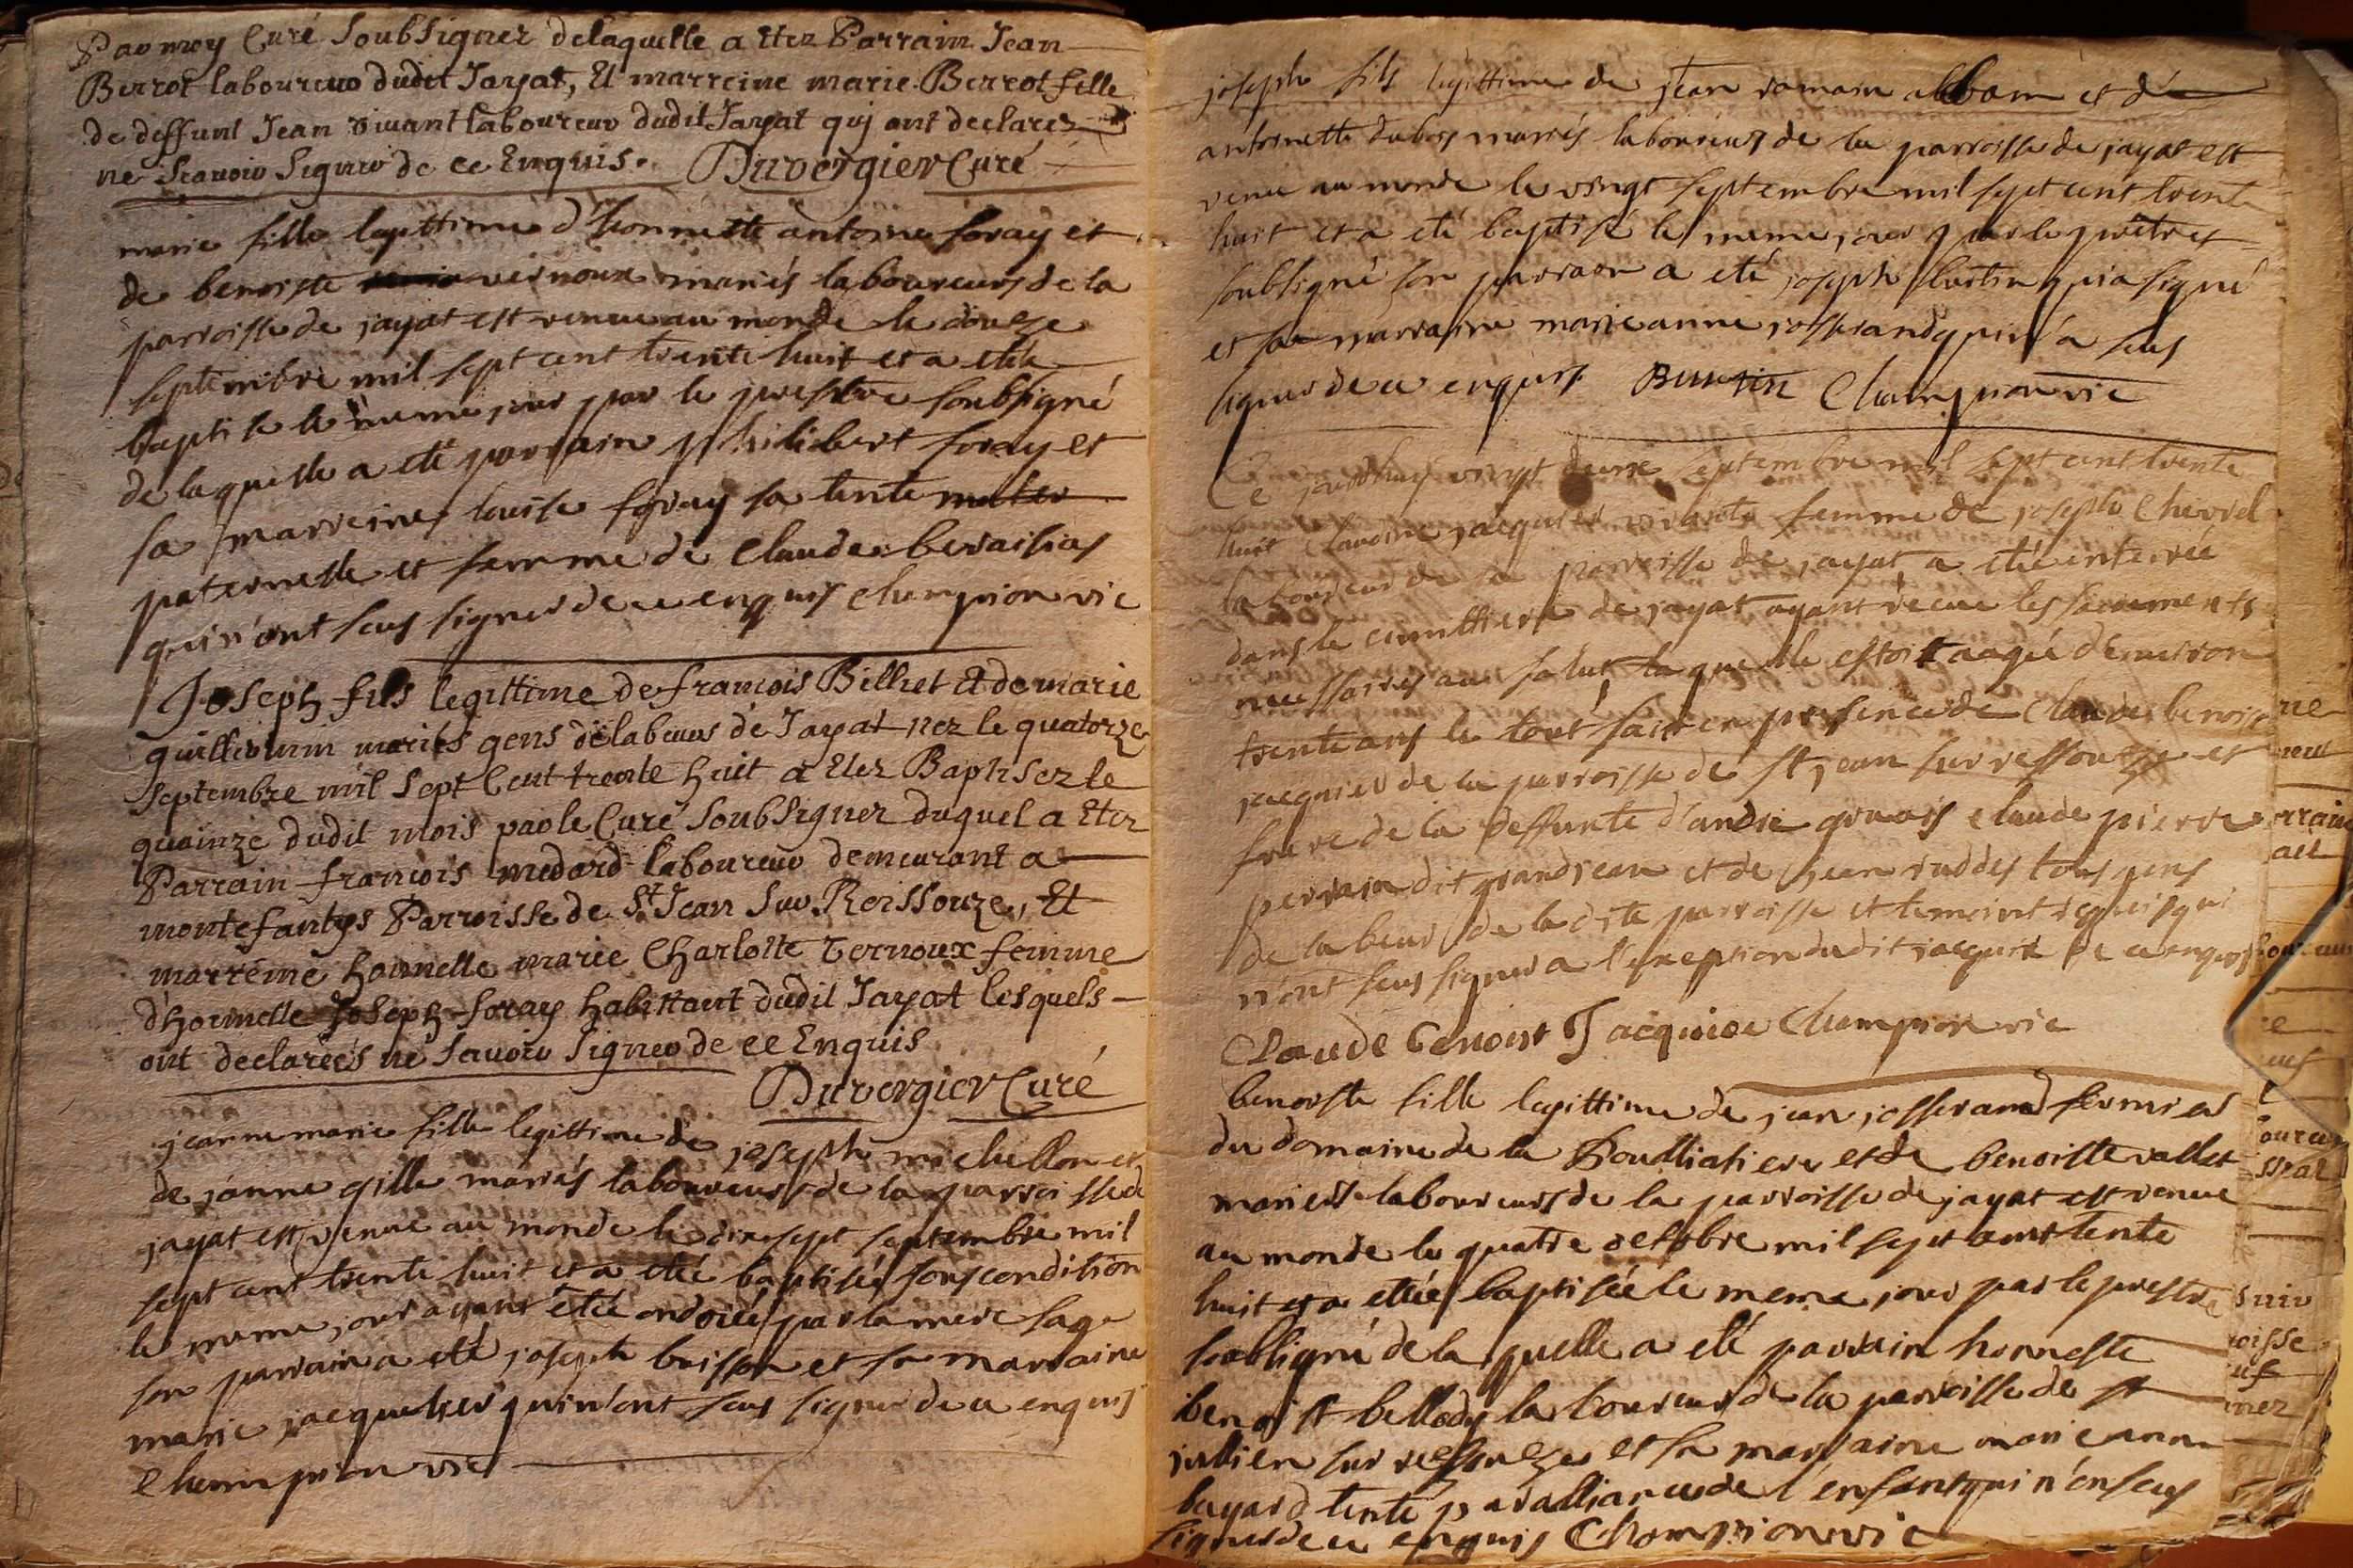 Par moy Curé SoubSignez delaquelle a Etez Parrain Jean
Berrot laboureur dudit Jayat, Et marreine marie Berrot fille
de deffunt Jean vivant laboureur dudit Jayat quj ont declarez
ne Scavoir Signer de ce Enquis. Duvergier Curé
marie fille legittime d'honneste antoine foray et
de benoiste vernoux mariés laboureurs de la
parroisse de jayat est venue au monde le douze
septembre mil sept cent trente huit et a etée
baptisée le meme jour par le prestre soubsigné
de laquelle a eté parrain philibert foray et
sa marreine louise foray sa tente
paternelle et femme de Claude beraisias
qui n'ont seus signer de ce enquis Championvic
Joseph fils legittime de francois Billiet Et de marie
mariés gens de labeur de Jayat nez le quatorze
Septembre mil Sept Cent trente huit a Etez Baptisez le
quinze dudit mois par le Curé SoubSignez duquel a Etez
Parrain francois medard laboureur demeurant a
montefanty Parroisse de St Jean Sur Reissouze, Et
marreine honnette marie Charlotte vernoux femme
d'honnette Joseph foray habittant dudit Jayat lesquels
ont declareés ne Savoir Signer de ce Enquis
Duvergier Curé
jeanne marie fille legittime de joseph michellon et
de janne gille mariés laboureurs de la parroisse de
jayat est venue au monde le dix sept septembre mil
sept cent trente huit et a etée baptisée sous condition
le meme jour ayant étée ondoiée par la mere sage
son parrain a eté joseph buisson et sa marraine
marie qui n'ont seus signer de ce enquis
Championvic
joseph fils legittime de jean romain alban et de
antoinette dubois mariés laboureurs de la parroisse de jayat est
venu au monde le vingt septembre mil sept cent trente
huit et a eté baptisé le meme jour par le prêtre
soubsigné son parrain a eté joseph qui a signé
et sa marraine marie anne josserand qui n'a seus
signer de ce enquis Championvic
Ce jourdhuy vingt deux septembre mil sept cent trente
huit Claudine jacquier vivante femme de joseph Chevrel
laboureur de la parroisse de jayat a étée enterrée
dans le cimittiere de jayat ayant receue les sacrements
necessaires au salut laquelle estoit aagée denviron
trente ans le tout fait en presence de Claude benoist
jacquier de la parroisse de St jean sur ressouze et
frere de la deffunte d'andré claude pierre
perrain dit grandjean et de jean ruddes tous gens
de labeur de la dite parroisse et temoins requis qui
n'ont seus signer a l'exception dudit jacquier de ce enquis
Claude Benoist Jacquier Championvic
benoiste fille legittime de jean josserand fermier
du domaine de la et de benoiste vallet
mariés laboureurs de la parroisse de jayat est venue
au monde le quatre octobre mil sept cent tente
huit et a etée baptisée le meme jour par le prestre
soubsigné de laquelle a eté parrain honneste
benoist bellody laboureur de la parroisse de st
jullien sur ressouze et sa marraine marie anne
bayard tente par alliance de l'enfant qui n'en seus
signer de ce enquis Championvic